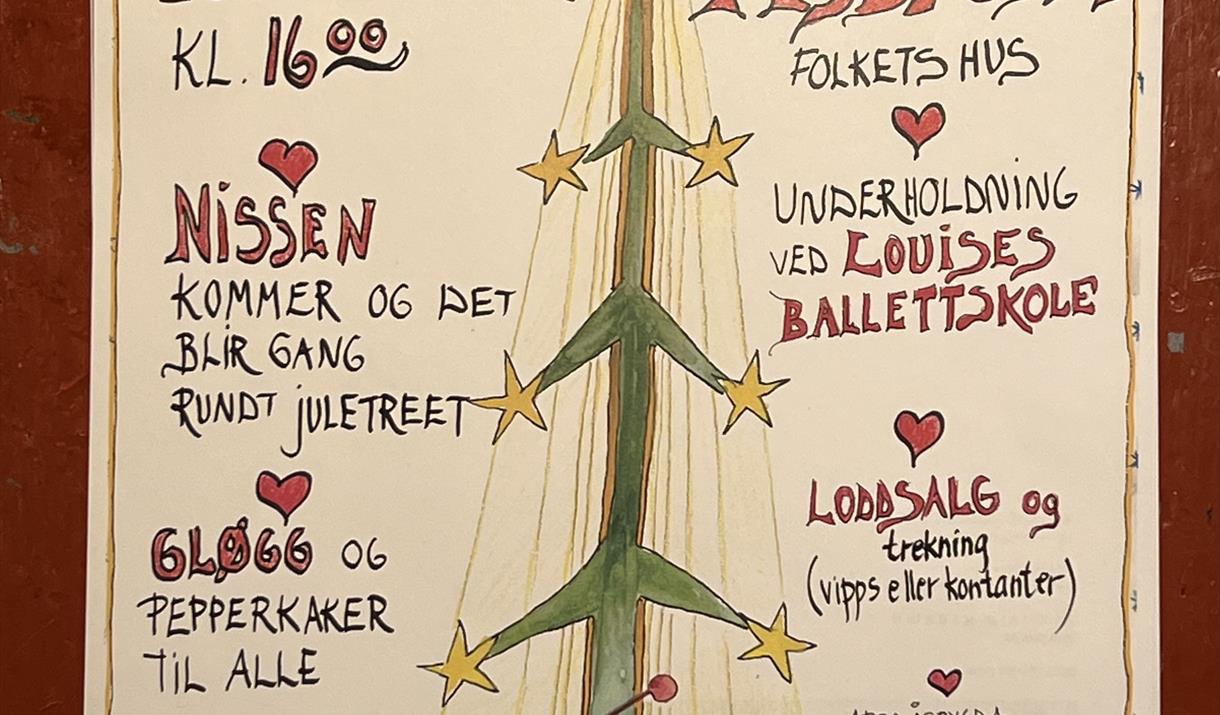 KL. 16⁰⁰
NISSEN
KOMMER OG DET
BLIR GANG
RUNDT JULETREET
GLØGG OG
PEPPERKAKER
TIL ALLE
FOLKETS HUS
UNDERHOLDNING
VED LOUISES
BALLETTSKOLE
LODDSALG og
trekning
(vipps eller kontanter)